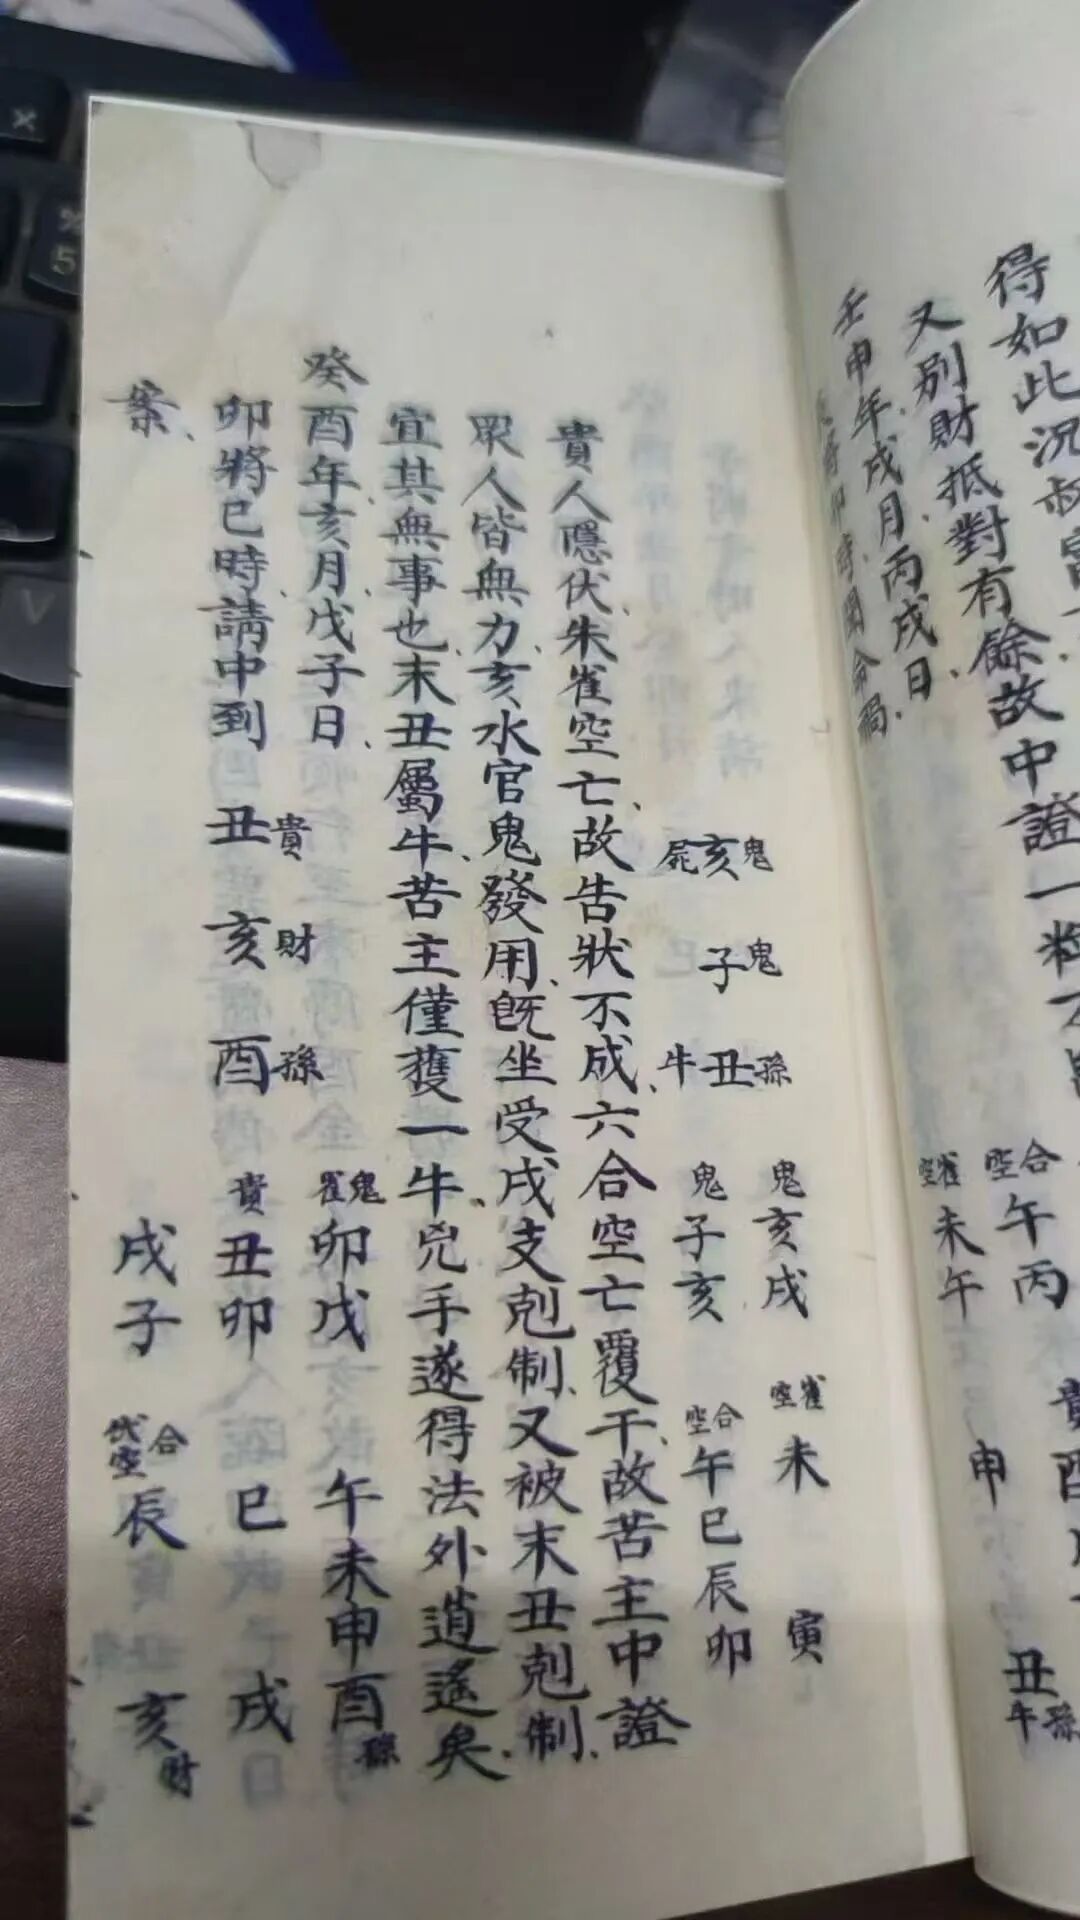 得如此況叔
又別財抵對有餘故中證一
壬申年戌月丙戌日、
將卯時 命禍、
合空
午丙
雀空
未午
申
貴
酉
丑
孫牛
鬼亥屍
鬼子
孫丑牛
鬼
亥戌
雀空
未
寅
鬼
子亥
合空
午巳辰卯
貴人隱伏、朱雀空亡、故告狀不成、六合空亡覆干、故苦主中證
眾人皆無力、亥水官鬼發用、既坐受戌支剋制、又被末丑剋制、
宜其無事也、末丑屬牛、苦主僅獲一牛、兇手遂得法外逍遙矣、
癸酉年亥月戊子日、
鬼雀
卯戊
午未申酉孫
卯將巳時請中到
貴丑
財亥
孫酉
貴
丑卯
巳
戌
案、
戊子
合空
辰
亥財